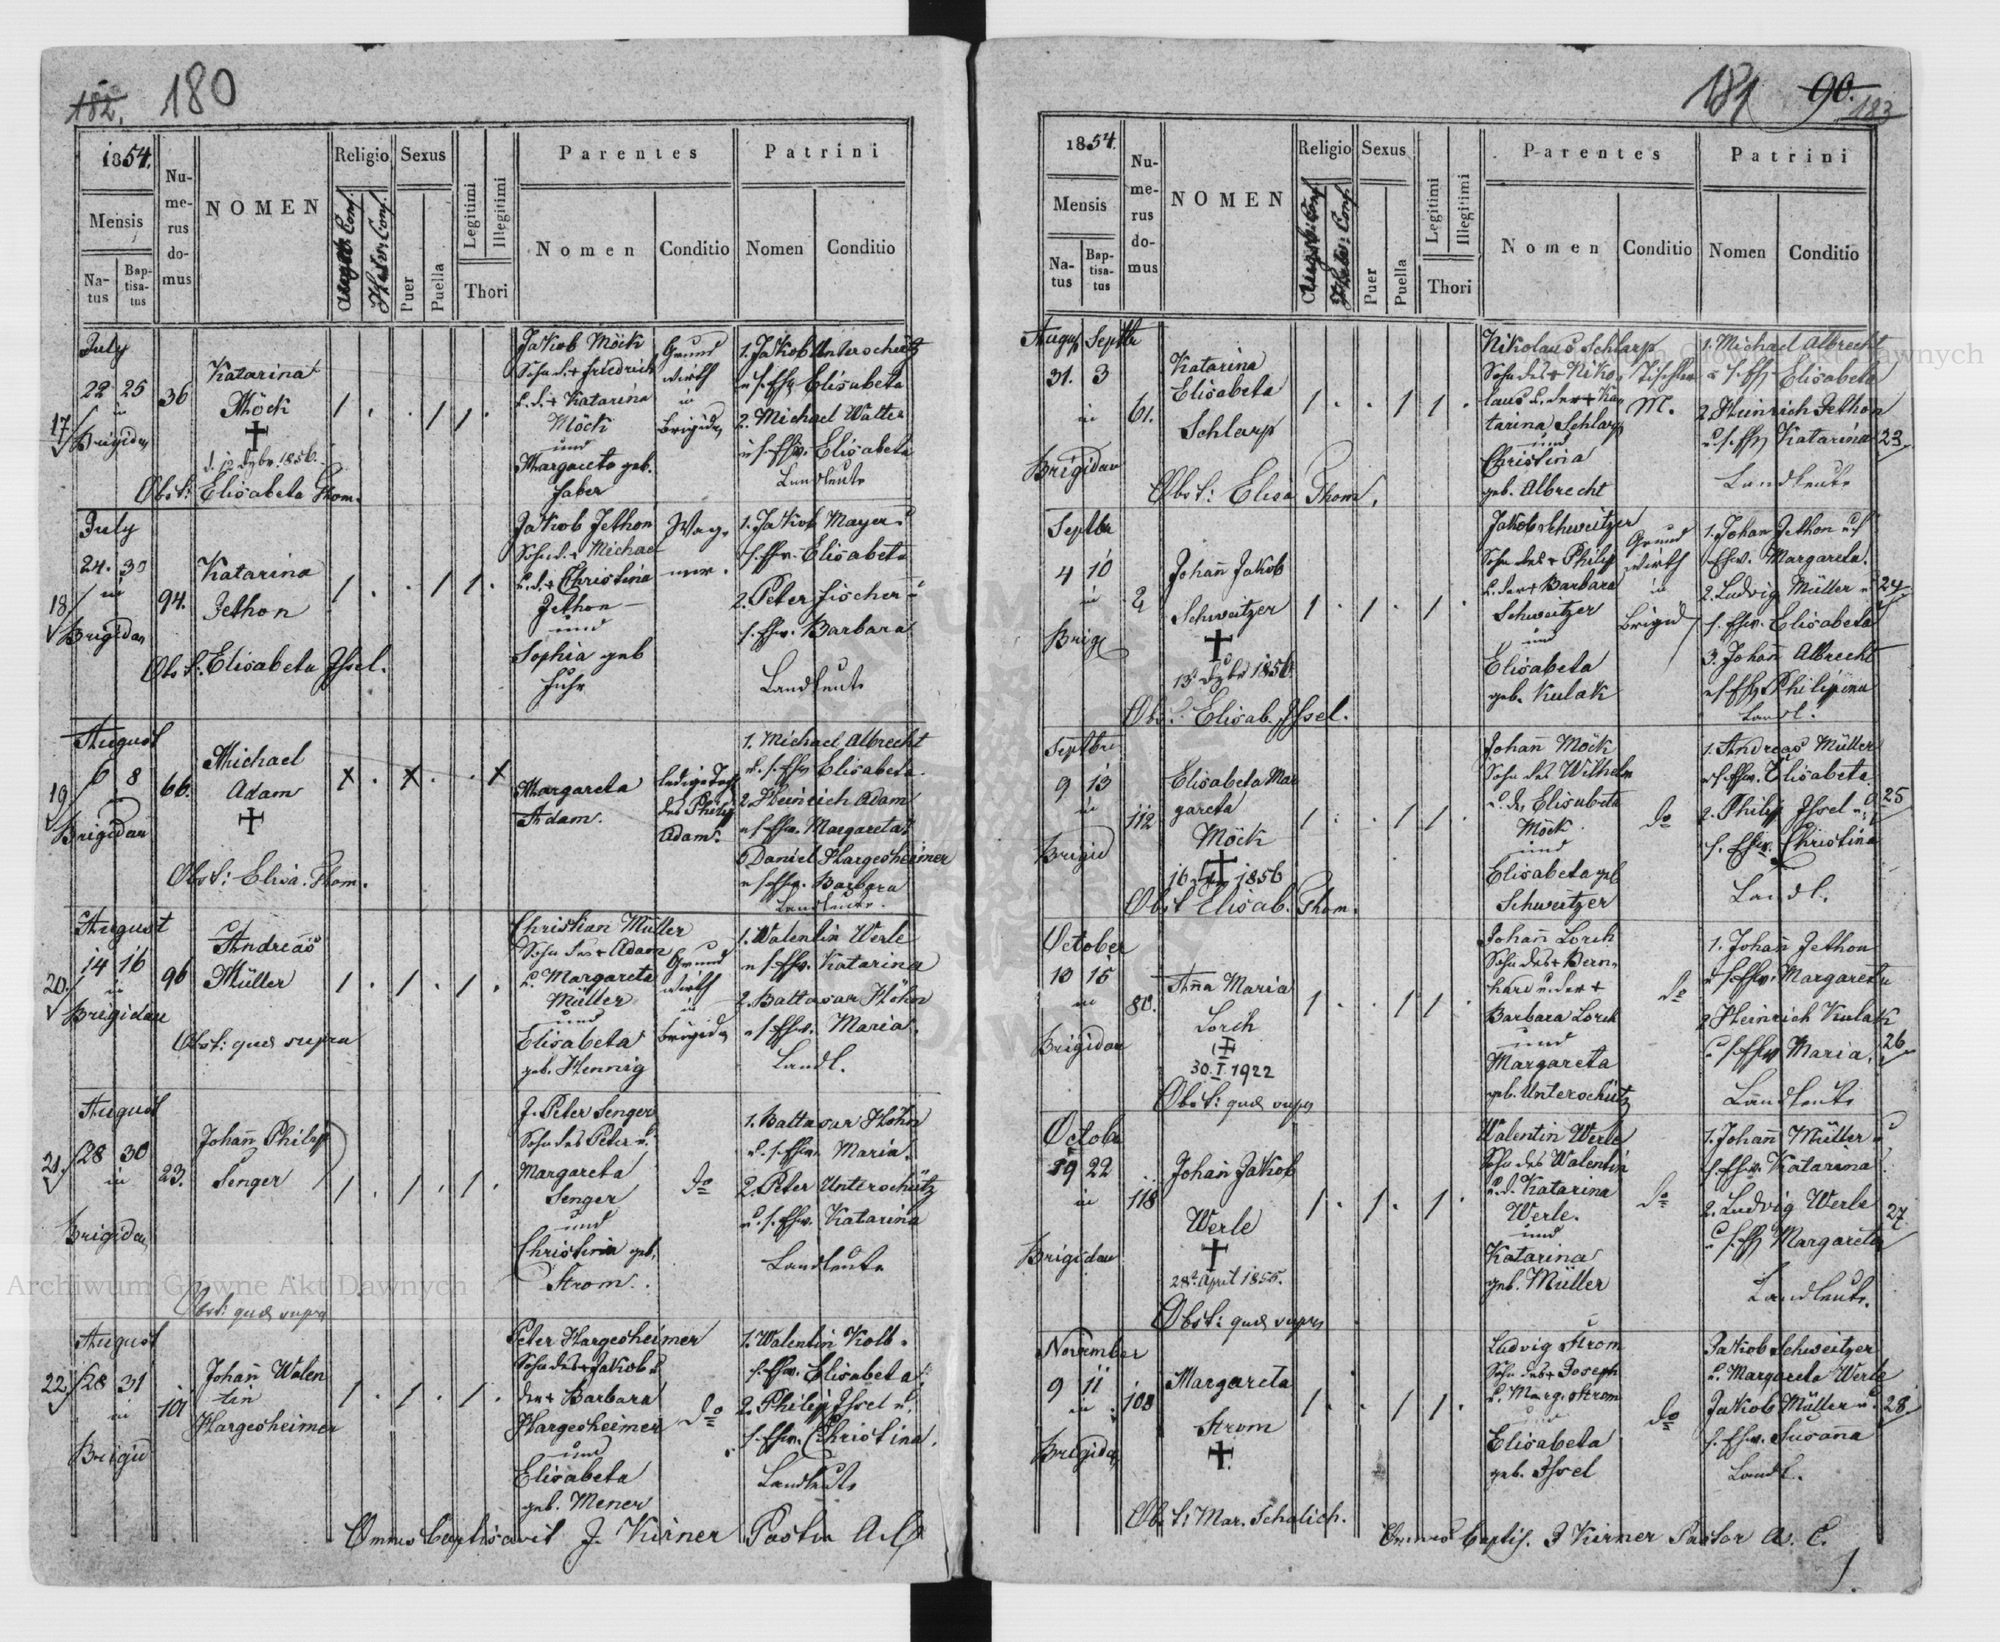 182. 180
1854.
Mensis
Na-
tus
Bap-
tisa-
tus
Nu-
me-
rus
do-
mus
NOMEN
Religio
Augsb. Conf.
Helv. Conf.
Sexus
Puer
Puella
Legitimi
Illegitimi
Thori
Parentes
Nomen
Conditio
Patrini
Nomen
Conditio
17
July
22 25
in
Brigidau
36
Katarina
Möck
Obst: Elisabeta Thom.
Jakob Möck
Sohn d. + Friedrich
u. d. + Katarina
Möck
und
Margareta geb.
Faber
Grund
wirth
in
Brigidau
1. Jakob Unterschütz
u. s. Ehfr. Elisabeta
2. Michael Walter
u. s. Ehfr. Elisabeta
Landleute
18
July
24. 30
in
Brigidau
94.
Katarina
Jethon
Obst. Elisabeta Issel.
Jakob Jethon
Sohn d. + Michael
u. d. + Christina
Jethon
und
Sophia geb
Fuhr
Wag-
ner.
1. Jakob Mayer u.
s. Ehfr. Elisabeta
2. Peter Fischer u
s. Ehfr. Barbara
Landleute
19
August
6 8
in
Brigidau
66.
Michael
Adam
Obst: Elisa. Thom.
Margareta
Adam.
des Philip
Adam.
1. Michael Albrecht
u. s. Ehfr. Elisabeta.
2. Heinrich Adam
u. s. Ehfr. Margareta
Daniel Hargesheimer
u. s. Ehfr. Barbara
Landleute.
20.
August
14 16
in
Brigidau
96
Andreas
Müller
Obst: quae supra
Christian Müller
Sohn des + Adam
u. Margareta
Müller
und
Elisabeta
geb. Hennig
Grund
wirth
in
Brigidau
1. Walentin Werle
u. s. Ehfr. Katarina
2. Baltasar Höhn
u. s. Ehfr. Maria.
Landl.
21.
August
28 30
in
Brigidau
23.
Johann Philip
Senger
Obst: quae supra
J. Peter Senger
Sohn des Peter u.
Margareta
Senger
und
Christina geb.
Strom.
do
1. Baltasar Höhn
u. s. Ehfr. Maria.
2. Peter Unterschütz
u. s. Ehfr. Katarina
Landleute
22
August
28 31
in
Brigid
101
Johann Walen
tin
Hargesheimer
Peter Hargesheimer
Sohn des + Jakob u.
der + Barbara
Hargesheimer
und
Elisabeta
geb. Mener
do
1. Walentin Kolb u.
s. Ehfr. Elisabeta.
2. Philip Issel u.
s. Ehfr. Christina.
Landleute
Omnes baptisavit J. Kirner Pastor A. C.
181 90. 183
1854.
Mensis
Na-
tus
Bap-
tisa-
tus
Nu-
me-
rus
do-
mus
NOMEN
Religio
Augsb. Conf.
Helv. Conf.
Sexus
Puer
Puella
Legitimi
Illegitimi
Thori
Parentes
Nomen
Conditio
Patrini
Nomen
Conditio
August Septbr
31. 3
in
Brigidau
61.
Katarina
Elisabeta
Schlarp
Obst: Elisa Thom.
Nikolaus Schlarp
Sohn des + Niko-
laus u. der + Ka-
tarina Schlarp
und
Christina
geb. Albrecht
Tischler
M.
1. Michael Albrecht
u. s. Ehfr. Elisabeta
2. Heinrich Jethon
u. s. Ehfr. Katarina
Landleute
23
Septbr
4 10
in
Brig
2
Johann Jakob
Schweitzer
Obst. Elisab. Issel.
Jakob Schweitzer
Sohn des + Philip
u. der + Barbara
Schweitzer
und
Elisabeta
geb. Kulak
Grund
wirth
in
Brigid
1. Johan Jethon u. s
Ehfr. Margareta.
2. Ludvig Müller u
s. Ehfr. Elisabeta
3. Johann Albrecht
u s Ehfr Philipina
Landl.
24
Septbr
9 13
in
Brigid
112
Elisabeta Mar
gareta
Möck
1856
Obst Elisab. Thom.
Johann Möck
Sohn des Wilhelm
u. d. Elisabeta
Möck.
und
Elisabeta geb
Schweitzer
do
1. Andreas Müller
u s. Ehfr. Elisabeta
2. Philip Issel u.
s. Ehfr. Christina
Landl.
25
October
10 15
in
Brigidau
80.
Anna Maria
Lorch
30. I. 1922
Obst: quae supra
Johann Lorch
Sohn des + Bern-
hard u. der +
Barbara Lorch
und
Margareta
geb. Unterschütz
do
1. Johann Jethon
u. s. Ehfr. Margareta
2 Heinrich Kulak
u s. Ehfr Maria.
Landleute
26
Octobr
19 22
in
Brigidau
118
Johan Jakob
Werle
28. April 1855.
Obst: quae supra
Walentin Werle
Sohn des Walentin
u. d. Katarina
Werle.
und
Katarina
geb. Müller
do
1. Johann Müller u
s. Ehfr. Katarina
2. Ludvig Werle
u s. Ehfr Margareta
Landleute.
27
November
9 11
in
Brigidau
108
Margareta
Strom
Obst: Mar. Schalich.
Ludvig Strom
Sohn des + Joseph
u. Marg. Strom
und
Elisabeta
geb. Issel
do
Jakob Schweitzer
u. Margareta Werle
Jakob Müller u.
s. Ehfr. Susanna
Landl.
28.
Omnes baptis. J Kirner Pastor A. C.
Archiwum Główne Akt Dawnych
Archiwum Główne Akt Dawnych